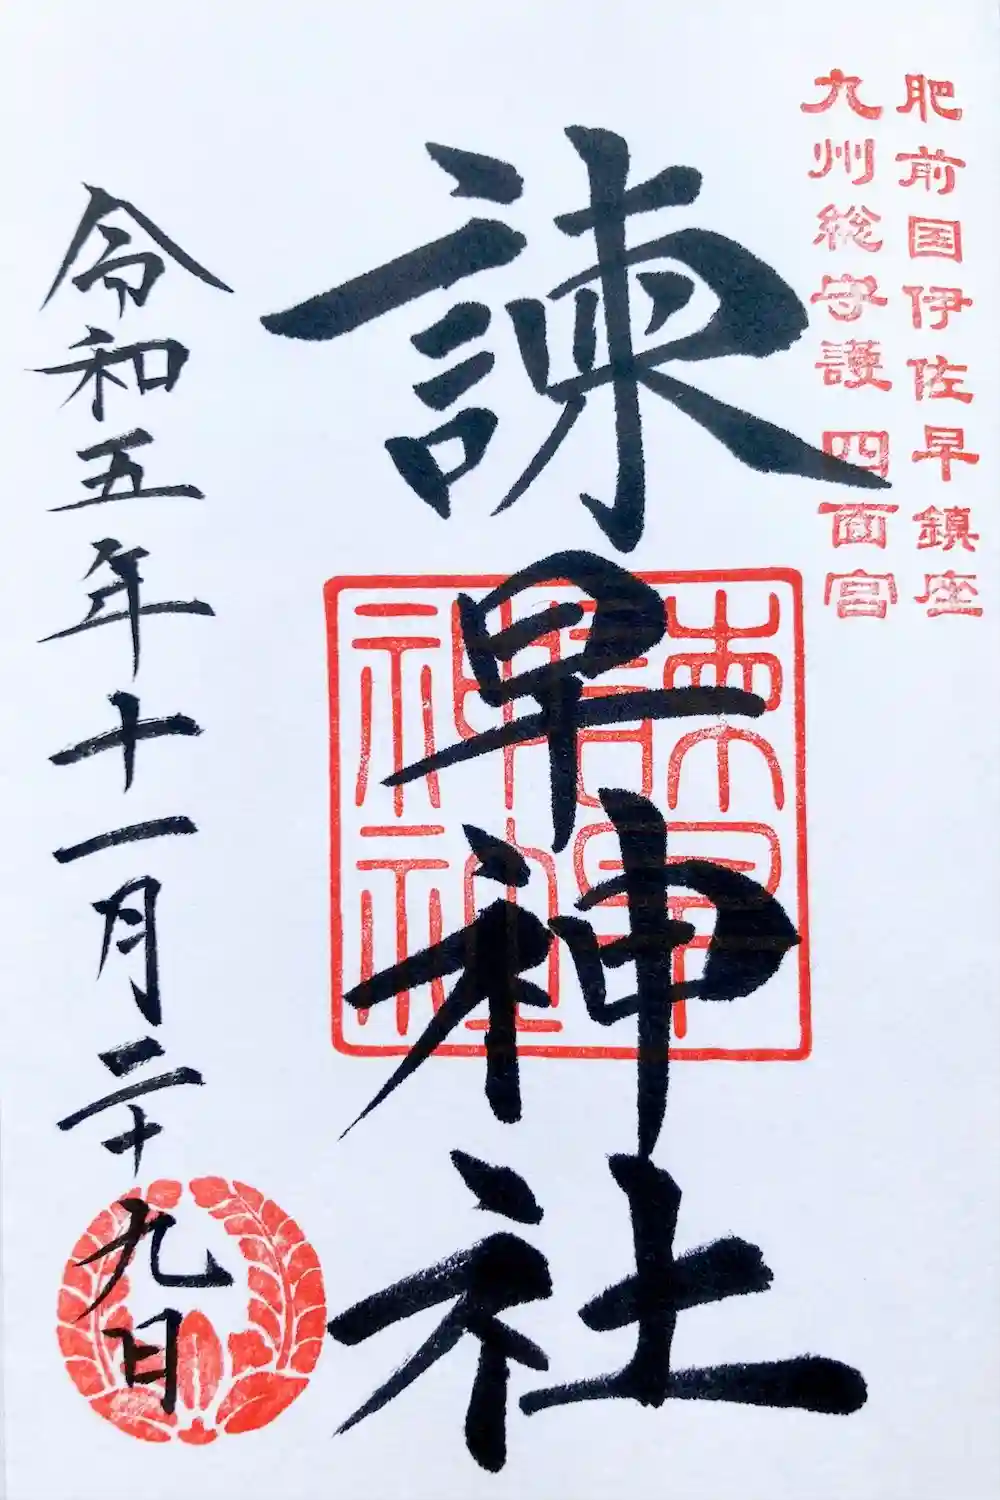 肥前国伊佐早鎮座
九州総守護 四面宮
諫早神社
令和五年十一月二十九日